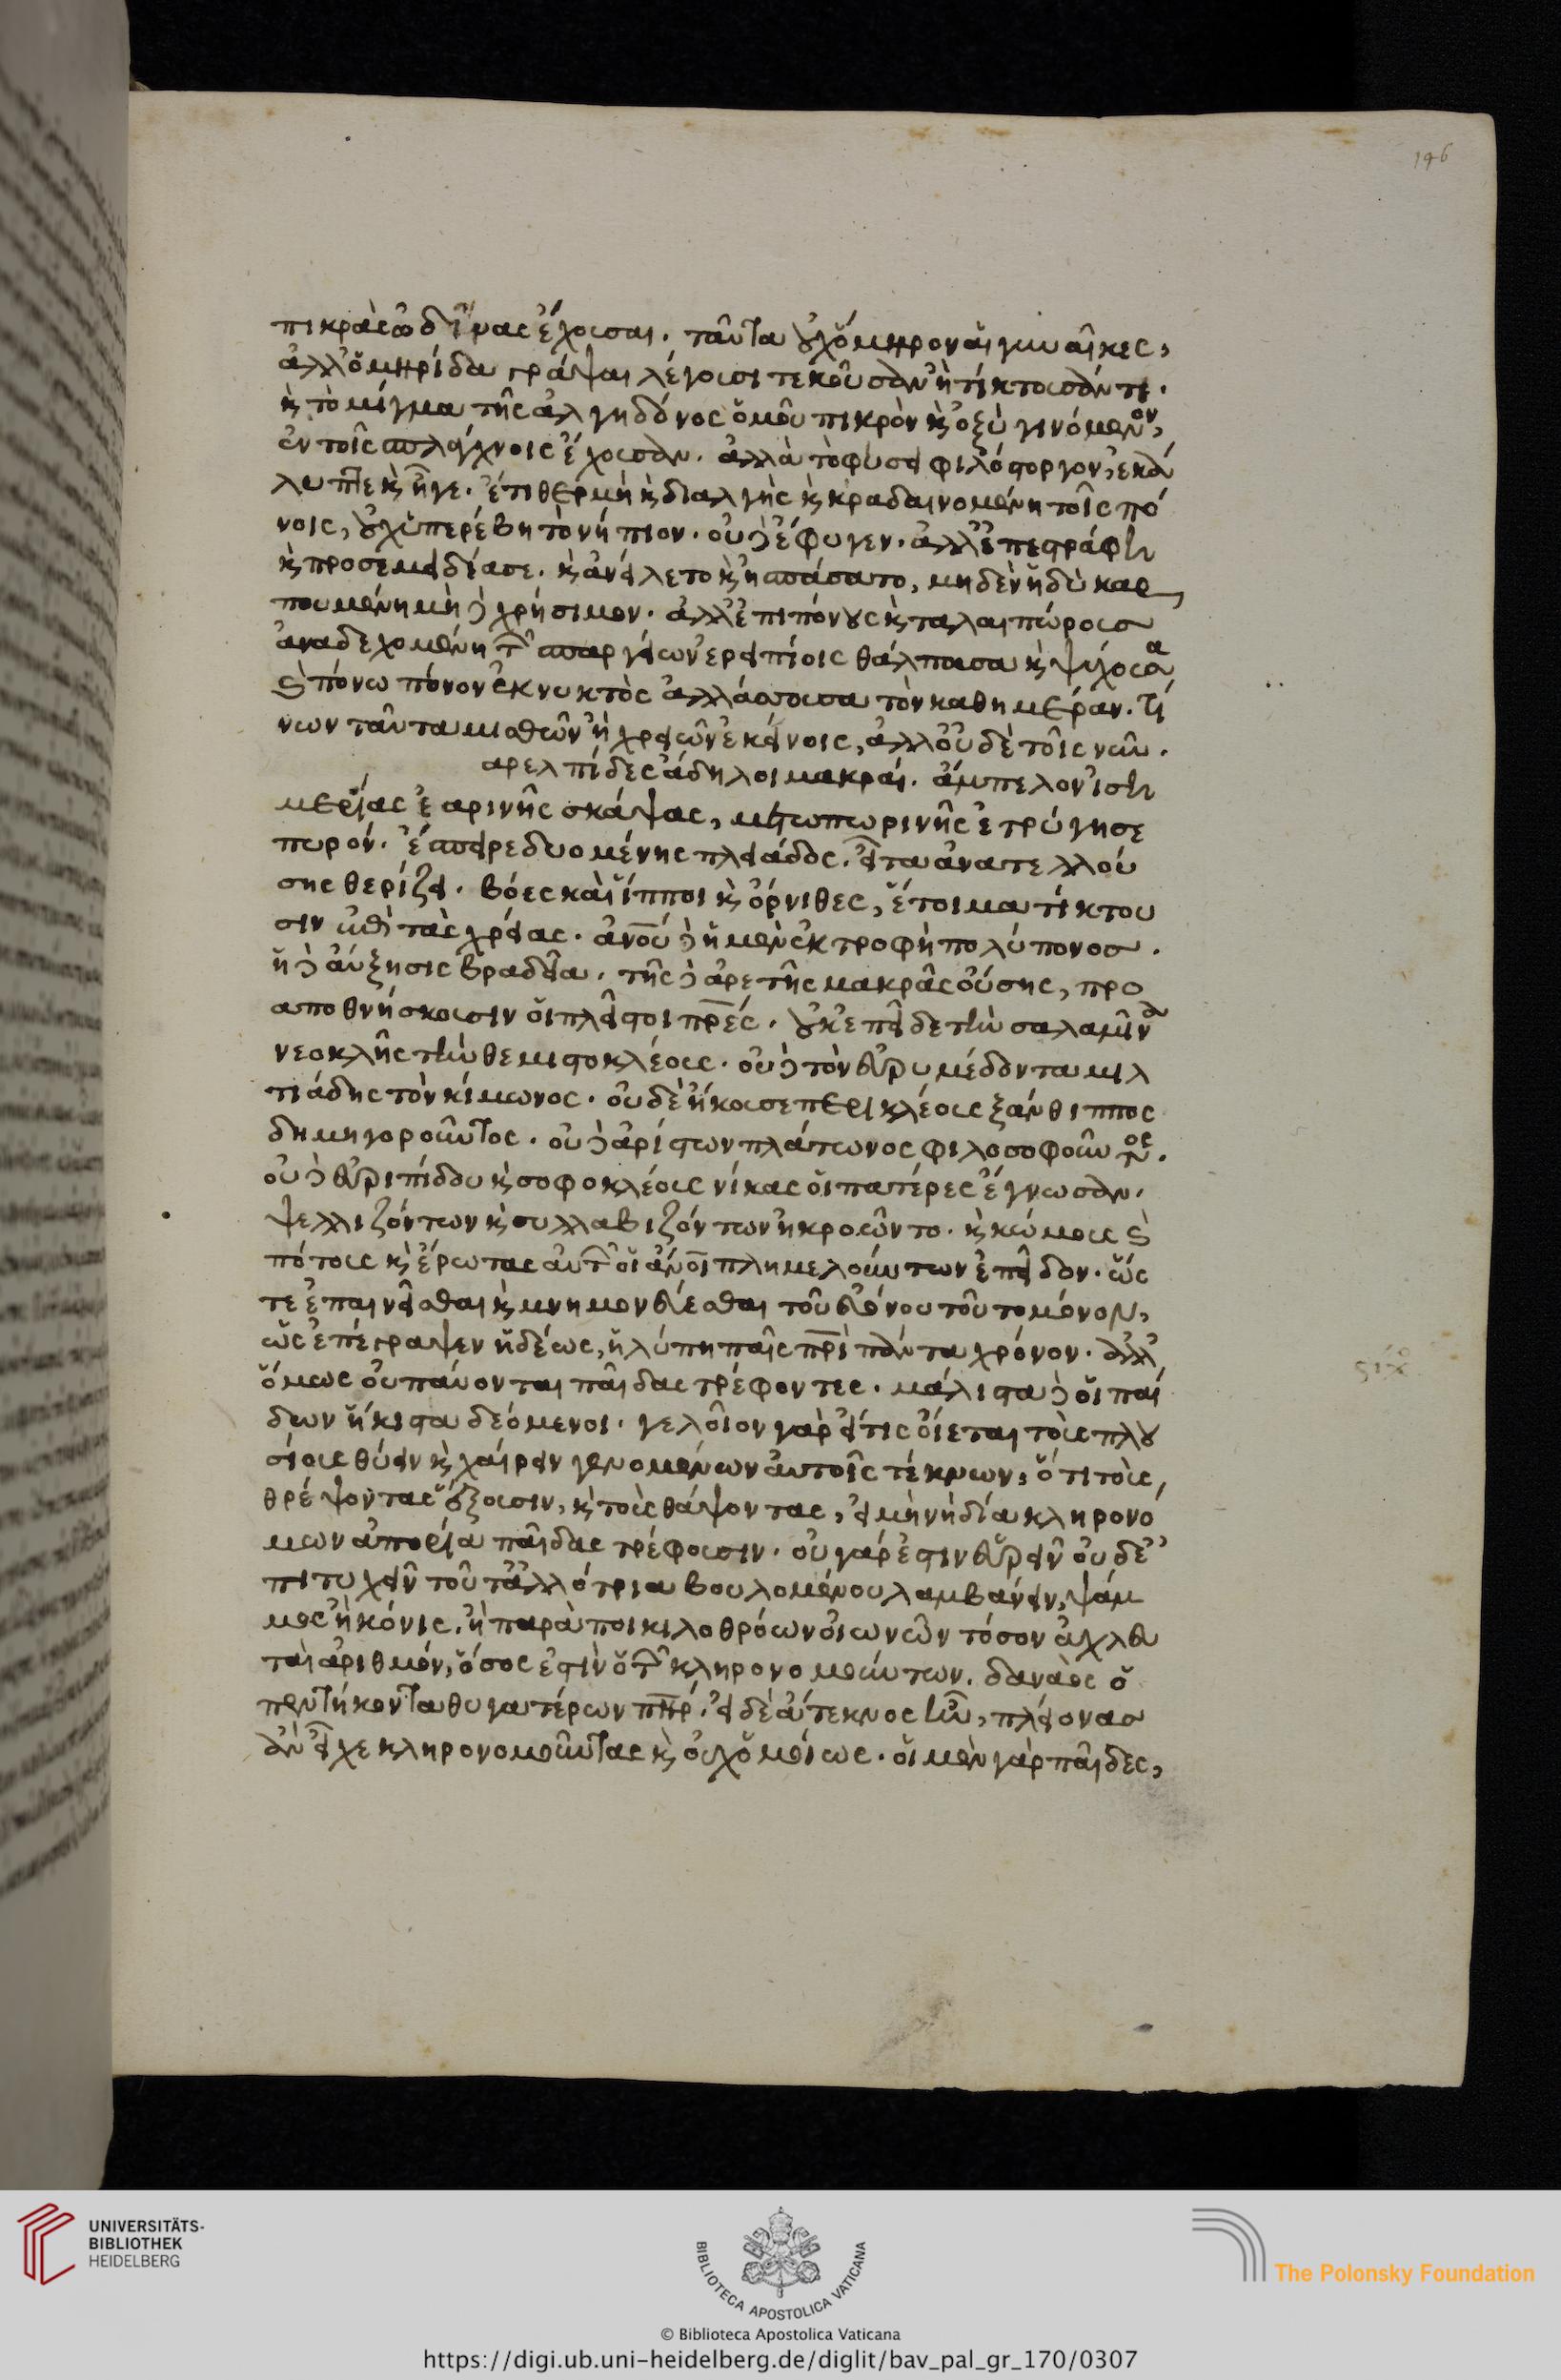 146
πικρὰς ὠδῖνας ἔχουσαι. ταῦτα οὐχ ὅμηρον αἱ γυναῖκες,
ἀλλ' ὁμηρίδα γράψαι λέγουσι τεκοῦσαν ἢ τίκτουσαν ἔτι.
κ̀ τὸ μίγμα τῆς ἀλγηδόνος ὁμοῦ πικρὸν κ̀ ὀξὺ γινόμενον,
ἐν τοῖς σπλάγχνοις ἔχουσαν. ἀλλὰ τὸ φύσει φιλόστοργον, ἔκα
μπτε κ̀ ἦγε. ἔτι θερμὴ κ̀ διαλγὴς κ̀ κραδαινομένη τοῖς πό
νοις, οὐχ ὑπερέβη τὸ νήπιον. οὐδ' ἔφυγεν. ἀλλ' ἐπεστράφη
κ̀ προσεμειδίασε. κ̀ ἀνείλετο κ̀ ἠσπάσατο, μηδὲν ἡδὺ καρ
πουμένη μηδὲ χρήσιμον. ἀλλ' ἐπιπόνους κ̀ ταλαιπώρους
ἀναδεχομένη τῶν σπαργάνων ἐρειπίοις θάλπουσα κ̀ ψύχουσα,
κ̀ πόνῳ πόνον ἐκ νυκτὸς ἀλλάσσουσα τὸν καθημέραν. τί
νων ταῦτα μισθῶν ἢ χρειῶν ἐκείνοις, ἀλλ' οὐδὲ τοῖς νῦν.
αρ ελπίδες ἄδηλοι μακραί. ἀμπελον ἰση
μερίας ἐαρινῆς σκάψας, μετοπωρινῆς ἐτρύγησε
πυρόν. ἔσπειρε δυομένης πλειάδος. εἶτα ἀνατελλού
σης θερίζει. βόες καὶ ἵπποι κ̀ ὄρνιθες, ἕτοιμα τίκτου
σιν ἐπὶ τὰς χρείας. ἀνου δὲ ἡ μὲν ἐκτροφὴ πολύπονος.
ἡ δὲ αὔξησις βραδεῖα. τῆς δὲ ἀρετῆς μακρᾶς οὔσης, προ
αποθνήσκουσιν οἱ πλεῖστοι πρές. οὐκ ἐπεῖδε τὴν σαλαμῖνα
νεοκλῆς τὴν θεμιστοκλέους. οὐδὲ τὸν εὐρυμέδοντα μιλ
τιάδης τὸν κίμωνος. οὐδὲ ἤκουσε περικλέους ξάνθιππος
δημηγοροῦντος. οὐδὲ ἀρίστων πλάτωνος φιλοσοφοῦντος.
οὐδ' εὐριπίδου κ̀ σοφοκλέους νίκας οἱ πατέρες ἔγνωσαν.
ψελλιζόντων κ̀ συλλαβιζόντων ἠκροῶντο. κ̀ κώμους κ̀
πότους κ̀ ἔρωτας αὐτῶν οἱ ἀνοι πλημελούντων ἐπεῖδον. ὥς
τε ἐπαινεῖσθαι κ̀ μνημονεύεσθαι τοῦ εὐήνου τοῦτο μόνον,
ὡς ἐπέγραψεν ἡδέως, ἢ λύπη παῖς πρὶ πάντα χρόνον. ἀλλ'
ὅμως οὐ παύονται παῖδας τρέφοντες. μάλιστα δὲ οἱ παί
δων ἥκιστα δεόμενοι. γελοῖον γὰρ εἴ τις οἴεται τοὺς πλου
σίους θύειν κ̀ χαίρειν γενομένων αὐτοῖς τέκνων, ὅτι τοὺς
θρέψοντας ἕξουσιν, κ̀ τοὺς θάψοντας, εἰ μὴ νὴ δία κληρονό
μων ἀπορίᾳ παῖδας τρέφουσιν. οὐ γάρ ἐστιν εὑρεῖν οὐδ' ἐ
πιτυχεῖν τοῦ τἀλλότρια βουλομένου λαμβάνειν, ψάμ
μος ἢ κόνις, ἢ παρὰ ποικιλοθρόων οἰωνῶν τόσον ἀχλεῦ
ται ἀριθμόν, ὅσος ἐστὶν ὁ τῶν κληρονομούντων. δαναὸς ὁ
πεντήκοντα θυγατέρων πηρ. εἰ δὲ ἄτεκνος ἦν, πλείονας
ἂν εἶχε κληρονομοῦντας κ̀ οὐχ ὁμοίως. οἱ μὲν γὰρ παῖδες,
UNIVERSITÄTS-
BIBLIOTHEK
HEIDELBERG
BIBLIOTECA APOSTOLICA VATICANA
The Polonsky Foundation
© Biblioteca Apostolica Vaticana
https://digi.ub.uni-heidelberg.de/diglit/bav_pal_gr_170/0307